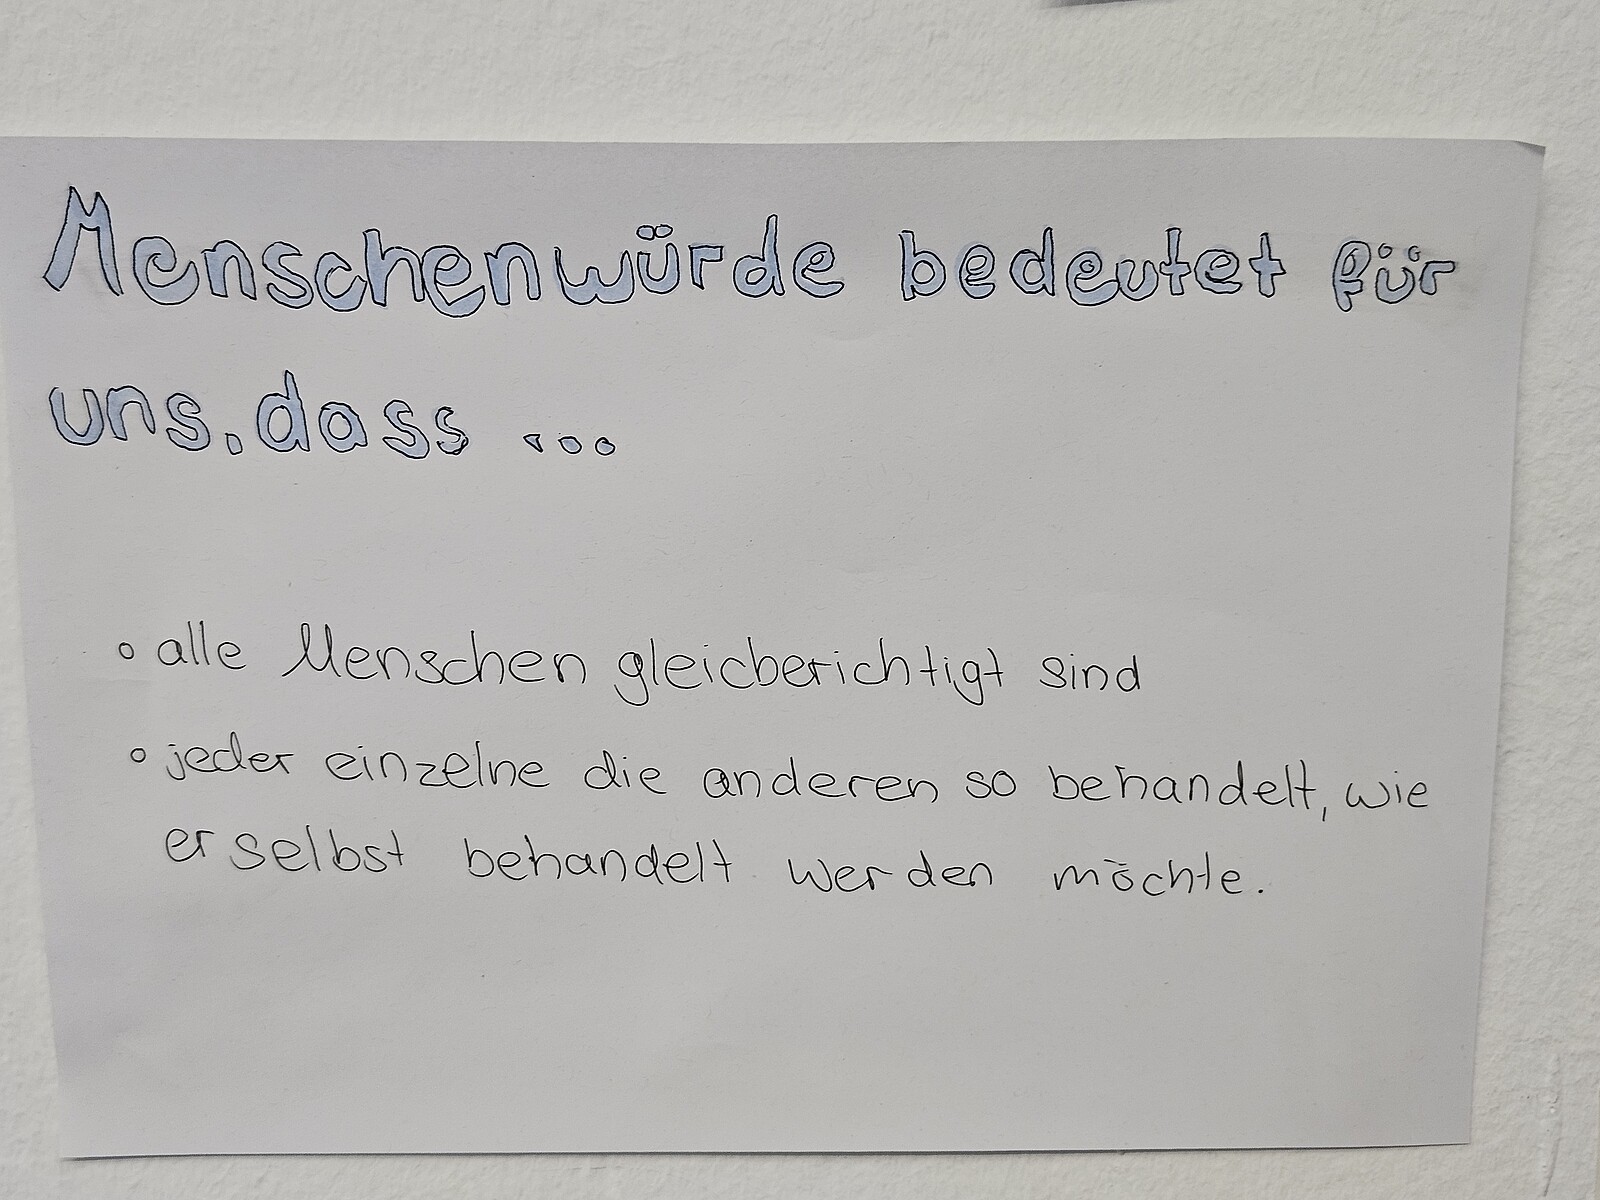 Menschenwürde bedeutet für
uns, dass ...
• alle Menschen gleicberichtigt sind
• jeder einzelne die anderen so behandelt, wie
er selbst behandelt werden möchte.